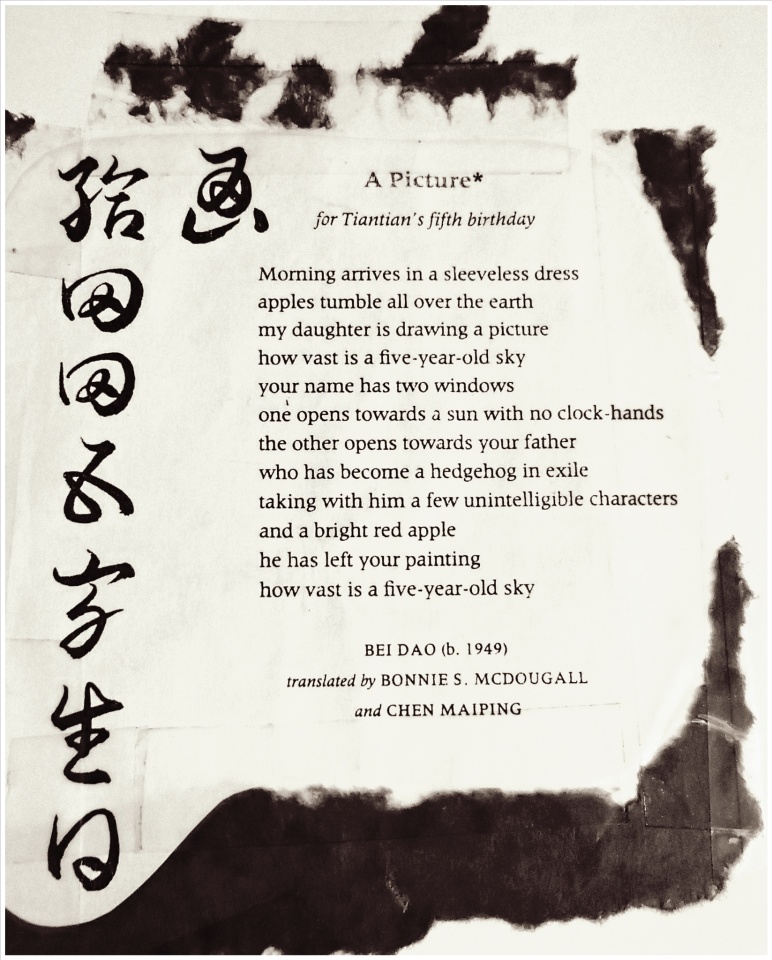 画
给田田五岁生日
A Picture*
for Tiantian's fifth birthday
Morning arrives in a sleeveless dress
apples tumble all over the earth
my daughter is drawing a picture
how vast is a five-year-old sky
your name has two windows
one opens towards a sun with no clock-hands
the other opens towards your father
who has become a hedgehog in exile
taking with him a few unintelligible characters
and a bright red apple
he has left your painting
how vast is a five-year-old sky
BEI DAO (b. 1949)
translated by BONNIE S. MCDOUGALL
and CHEN MAIPING